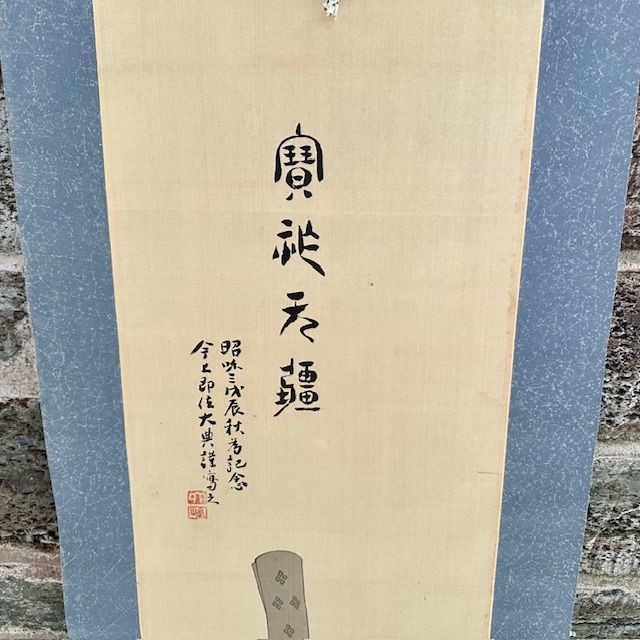 寶祚无疆
昭咊三戊辰秋為記念
今上即位大典謹寫之